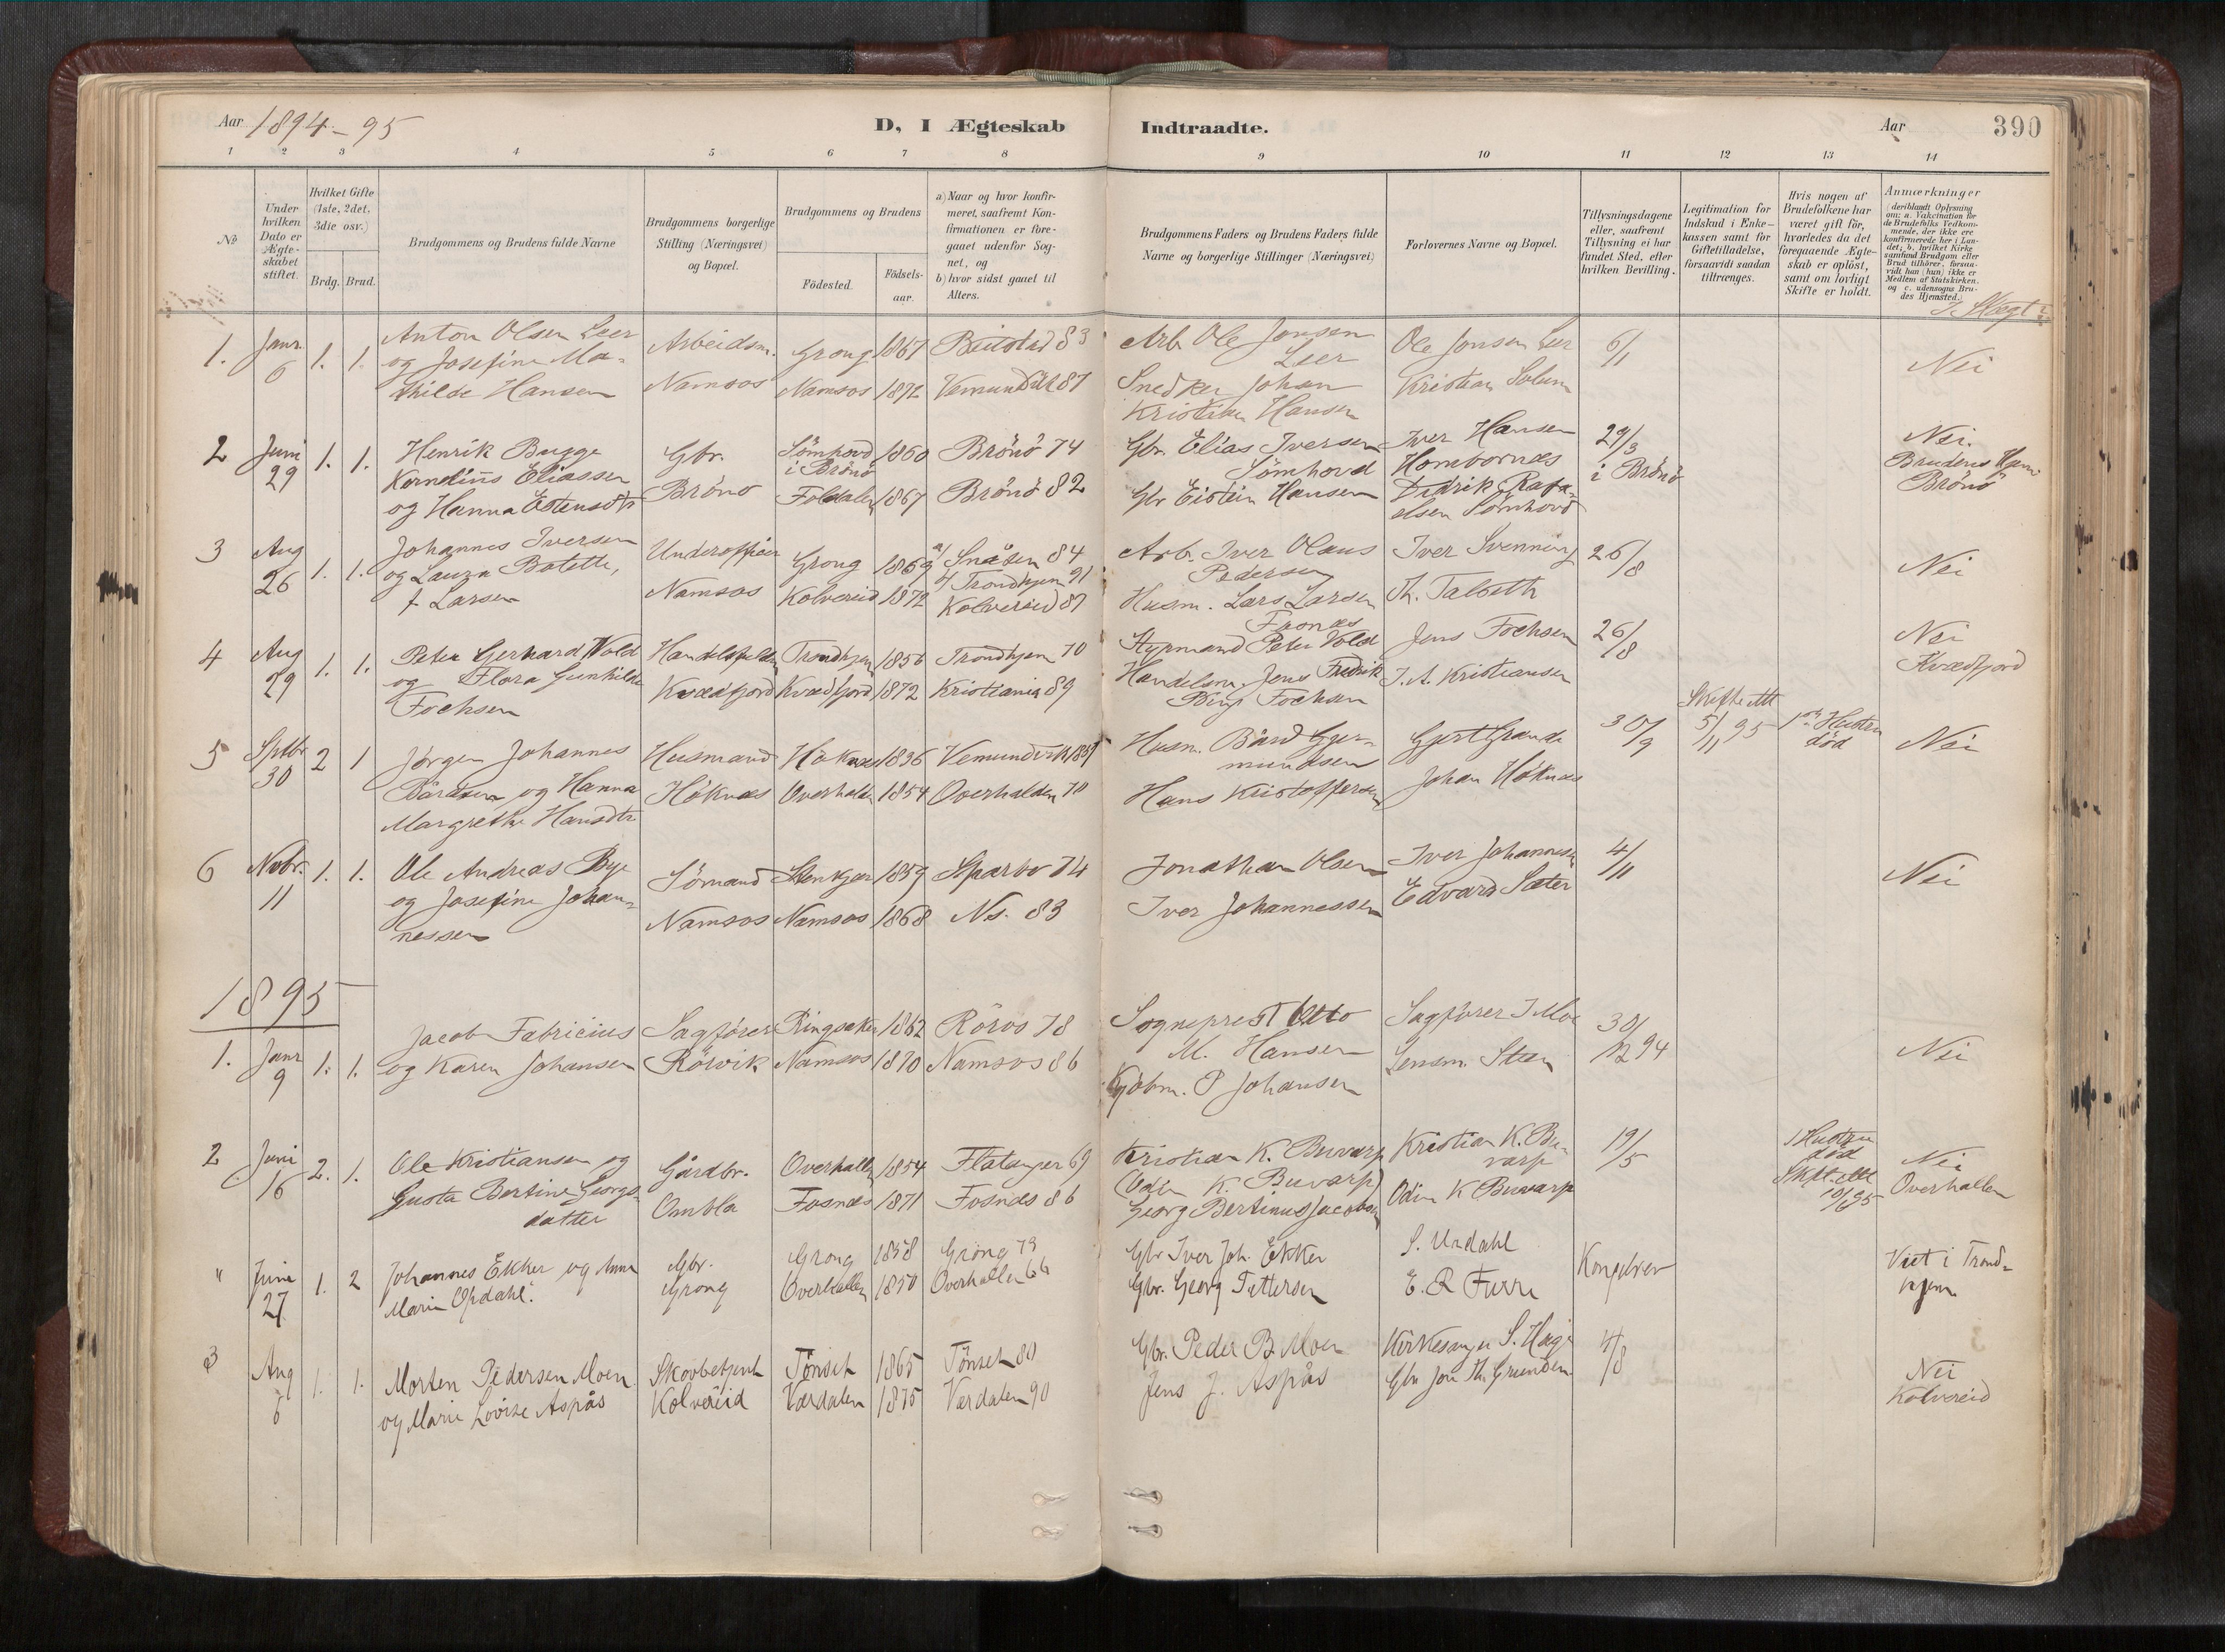 Aar 1894-95
D, I Ægteskab Indtraadte.
Aar 390
1 2 3 4 5 6 7 8 9 10 11 12 13 14
No
Under hvilken Dato er Ægteskabet stiftet.
Hvilket Gifte (1ste, 2det, 3die osv.)
Brdg. Brud.
Brudgommens og Brudens fulde Navne
Brudgommens borgerlige Stilling (Næringsvei) og Bopæl.
Brudgommens og Brudens
Fødested. Fødselsaar.
a) Naar og hvor konfirmeret, saafremt Konfirmationen er foregaaet udenfor Sognet, og
b) hvor sidst gaaet til Alters.
Brudgommens Faders og Brudens Faders fulde Navne og borgerlige Stillinger (Næringsvei)
Forlovernes Navne og Bopæl.
Tillysningsdagene eller, saafremt Tillysning ei har fundet Sted, efter hvilken Bevilling.
Legitimation for Indskud i Enkekassen samt for Giftetilladelse, forsaavidt saadan tiltrænges.
Hvis nogen af Brudefolkene har været gift før, hvorledes da det foregaaende Ægteskab er opløst, samt om lovligt Skifte er holdt.
Anmærkninger (deriblandt Oplysning om: a. Vakcination for de Brudefolks Vedkommende, der ikke ere konfirmerede her i Landet; b. hvilket Kirkesamfund Brudgom eller Brud tilhører, forsaavidt han (hun) ikke er Medlem af Statskirken. og c. udensogns Brudes Hjemsted.)
1. Janr 6 1. 1.
Anton Olsen Leer
og Josefine Ma-
thilde Hansen
Arbeidsm.
Namsos
Grong 1867 Beitstad 83
Namsos 1872 Vemundvik 87
Arb. Ole Jonsen
Leer
Snedker Johan
Kristian Hansen
Ole Jonsen Leer
Kristian Solum
6/1
Nei
2 Juni 29 1. 1.
Henrik Bugge
Kornelius Eliassen
og Hanna Estensdtr
Gbr.
Brönö
Sömhovd
i Brönö 1860 Brönö 74
Foldalen 1867 Brönö 82
Gbr. Elias Iversen
Sömhovd
Gbr Eistein Hansen
Iver Hansen
Hombornæs
Didrik Rafa-
elsen Sömhovd
29/3
i Brönö
Nei.
Brudens Hjem
Brönö
3 Aug 26 1. 1.
Johannes Iversen
og Laura Batette,
f. Larsen
Underofficer
Namsos
Grong 1869 a/ Snåsen 84
b/ Trondhjem 91
Kolvereid 1872 Kolvereid 87
Arb. Iver Olaus
Pedersen
Husm. Lars Larsen
Fnonæs
Iver Svenning
Th. Talseth
26/8
Nei
4 Aug 29 1. 1.
Peter Gerhard Wold
og Flora Gunhilde
Fochsen
Kvædfjord
Trondhjem 1856 Trondhjem 70
Kvædfjord 1872 Kristiania 89
Styrmand Peter Vold
Handelsm. Jens Fredrik
Fochsen
Jens Fochsen
J. A. Kristiansen
26/8
Nei
Kvædfjord
5 Sptbr 30 2 1
Jørgen Johannes
Bårdsen og Hanna
Margrethe Hansdtr
Husmand
Höknæs
Höknæs 1836
Overhalden 1854 Overhalden 70
Husm. Bård Gjer-
mundsen
Hans Kristoffersen
Gjert Grande
Johan Höknæs
30/9
Skifteatt
5/11 95
1ste Hustru
död
Nei
6 Novbr. 11 1. 1.
Ole Andreas Bye
og Josefine Johan-
nessen
Sömand
Namsos
Stenkjær 1859 Sparbo 74
Namsos 1868 Ns. 83
Jonathan Olsen
Iver Johannessen
Iver Johannesen
Edvard Sæter
4/11
Nei
1895
1. Janr 9 1. 1.
Jacob Fabricius
og Karen Johansen
Sagfører
Rörvik
Ringsaker 1862 Röros 78
Namsos 1870 Namsos 86
Sogneprest Otto
M. Hansen
Kjøbm. P Johansen
Sagfører I Moe
Lensm. Steen
30/12 94
Nei
2 Juni 16 2. 1.
Ole Kristiansen og
Gusta Bertine Georgs-
datter
Gårdbr.
Ombla
Overhallen 1854 Flatanger 69
Fosnæs 1871 Fosnæs 86
Kristian K. Buvarp
(Odin K. Buvarp)
Georg Bertinus Jacobsen
Kristian K. Bu-
varp
Odin K Buvarp
19/5
1 Hustru
död
Skft.att
10/6 95
Nei
Overhallen
" Juni 27 1. 2
Johannes Ekker og Anna
Maria Opdahl.
Gbr.
Grong
Grong 1858 Grong 73
Overhallen 1850 Overhallen 66
Gbr Iver Joh. Ekker
Gbr. Georg Pettersen
S. Urdahl
E. R Furre
Kongebrev
Viet i Trond-
hjem
3 Aug 6 1. 1.
Morten Pedersen Moen
og Marie Lovise Aspås
Skovbetjent
Kolvereid
Tönset 1865 Tönset 80
Værdalen 1875 Værdalen 90
Gbr. Peder B. Moen
Jens J. Aspås
Kirkesanger S. Hage
4/8
Nei
Kolvereid